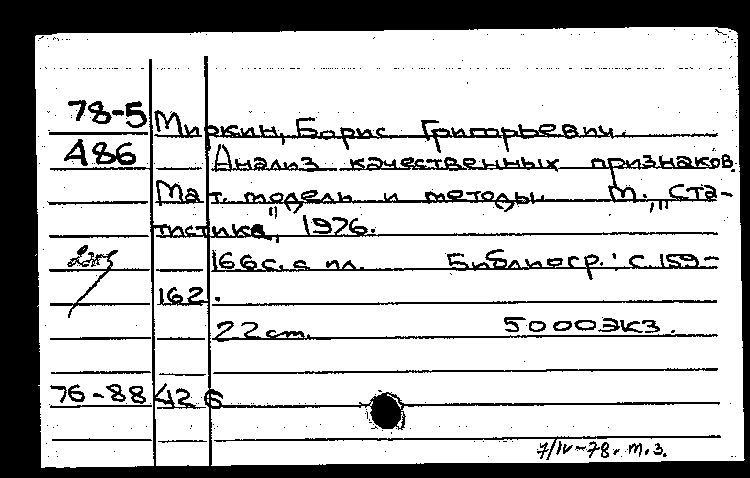 78-5 Миркин, Борис Григорьевич.
486 Анализ качественных признаков.
Мат. модели и методы. М., „Ста-
тистика", 1976.
2экз 166 с. с ил. Библиогр.: с. 159-
162.
22 см. 5000 экз.
76-88426
7/IV-78. м.з.